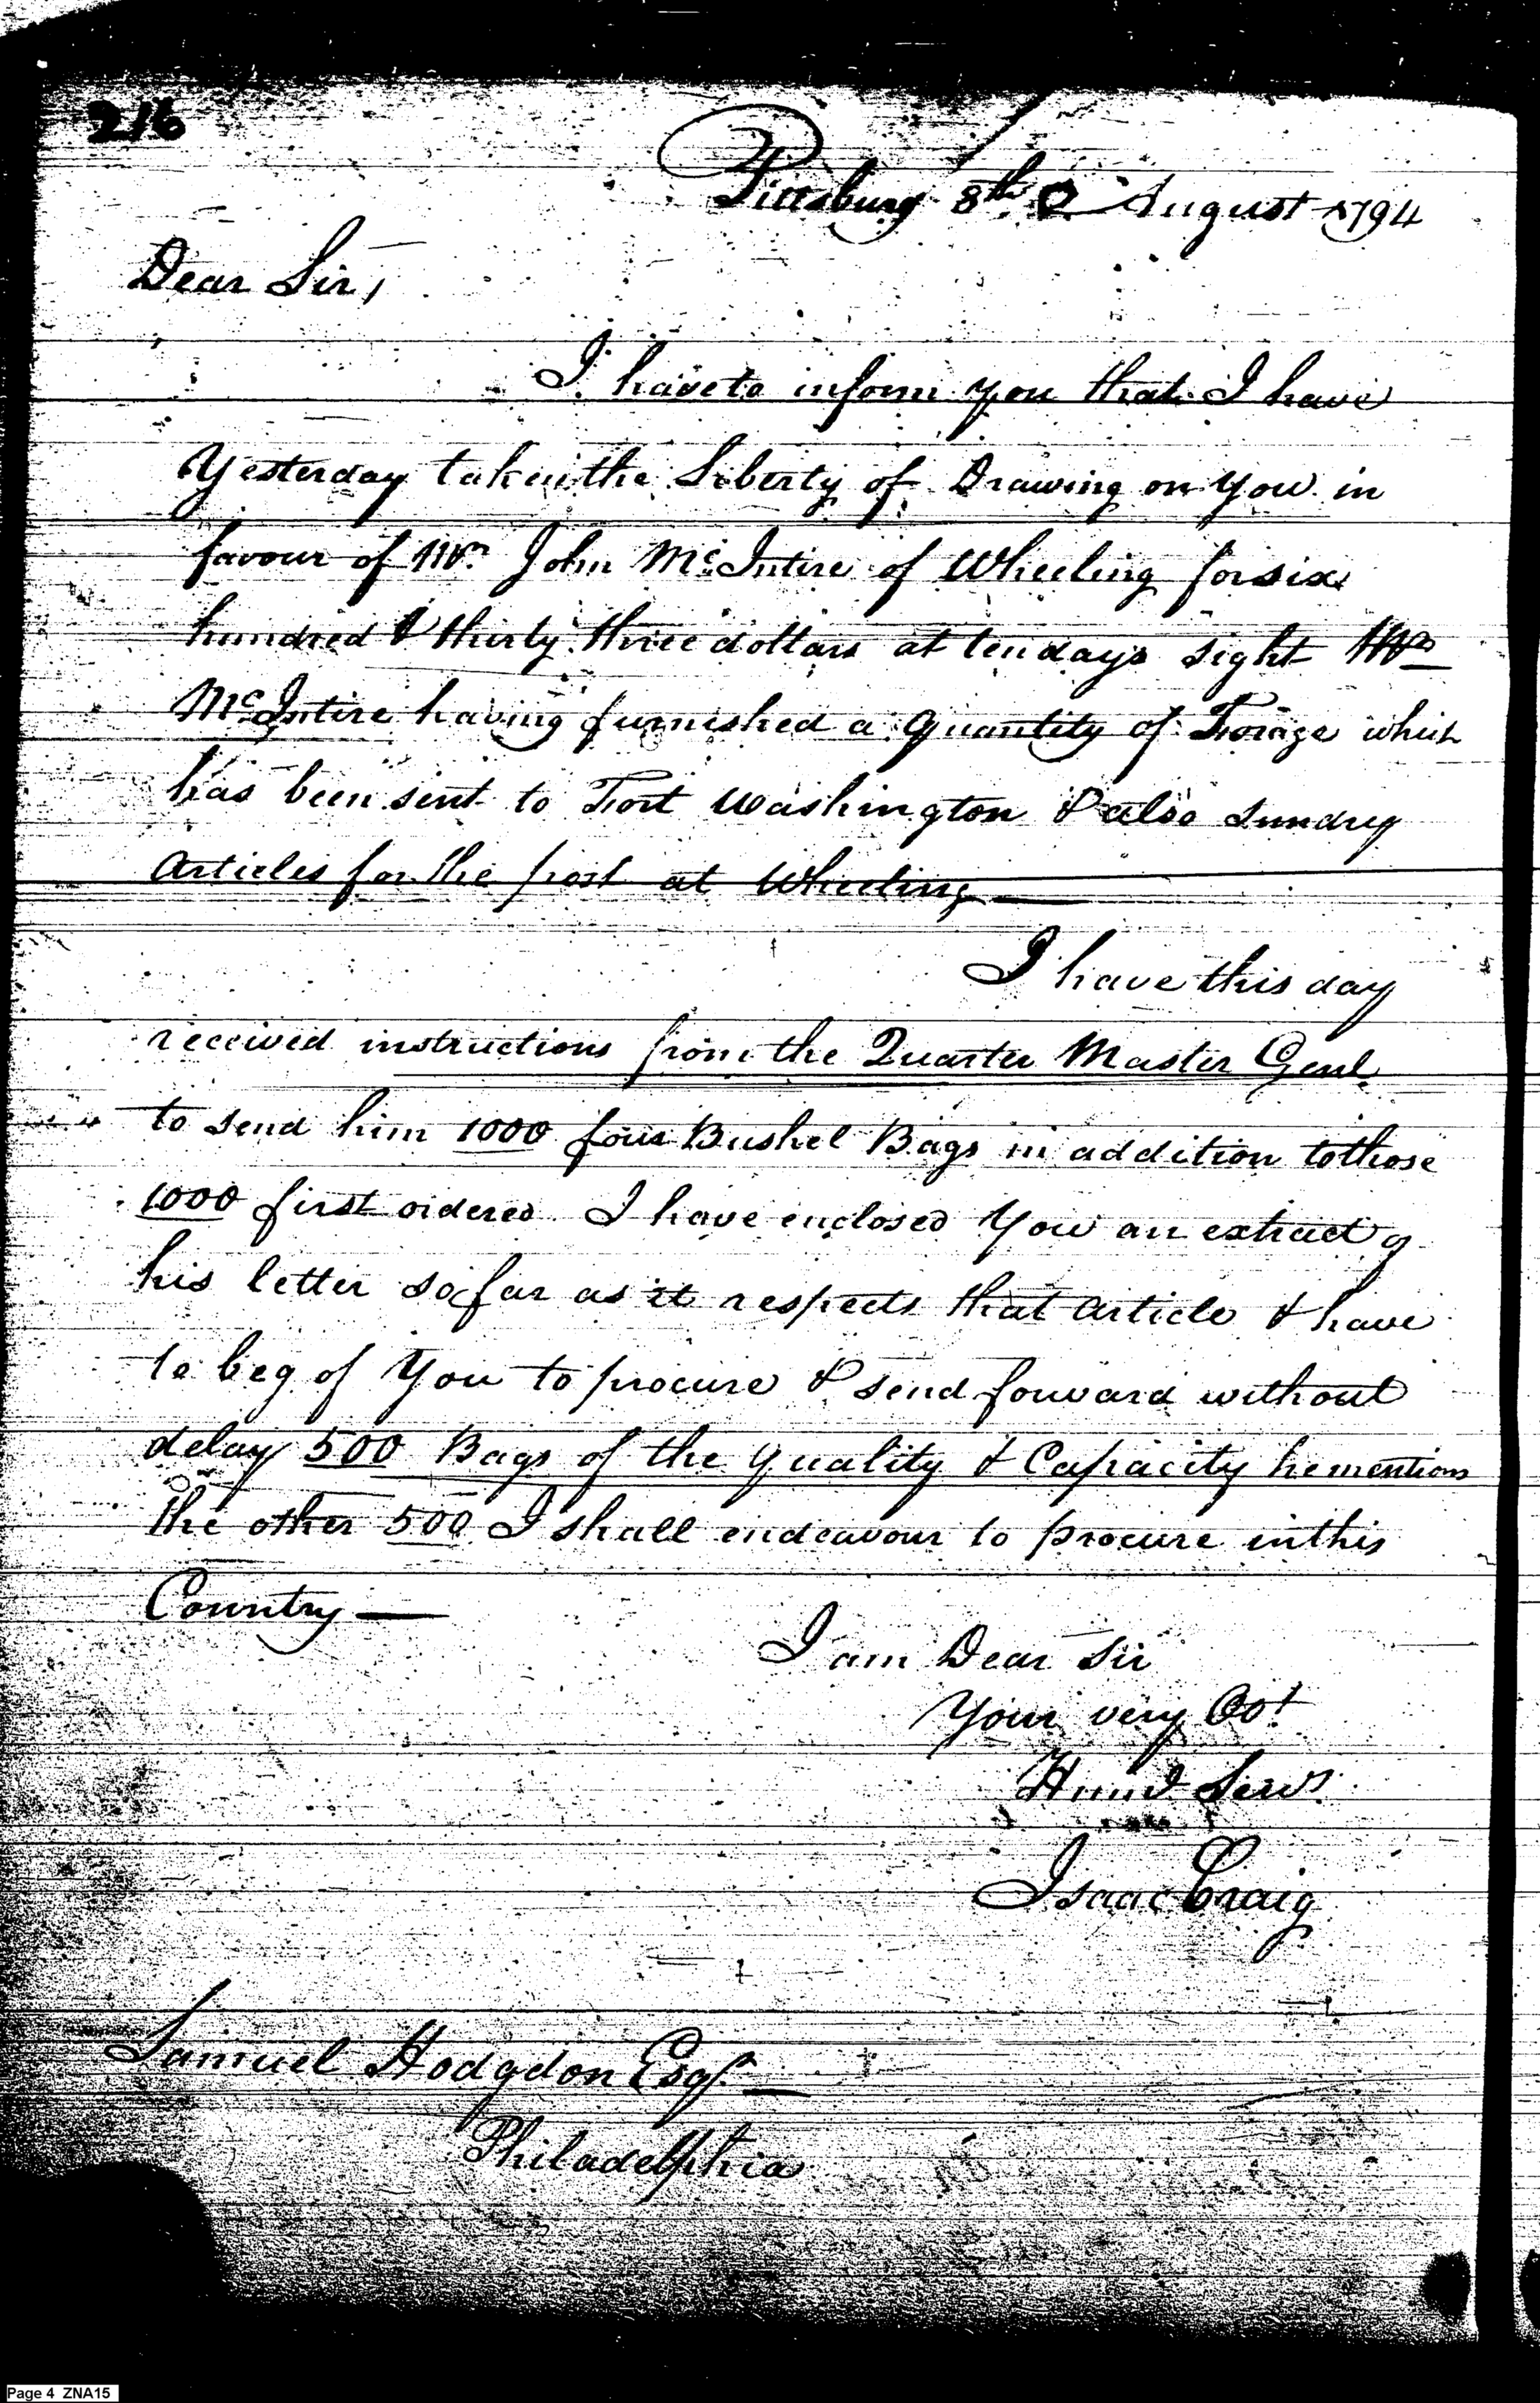 216
Pittsburg 8th August 1794
Dear Sir,
I have to inform you that I have
Yesterday taken the Liberty of Drawing on You in
favour of Mr. John McIntire of Wheeling for six
hundred & thirty three dollars at ten days sight Mr
McIntire having furnished a quantity of Forage which
has been sent to Fort Washington & also Sundry
Articles for the post at Wheeling —
I have this day
received instructions from the Quarter Master Genl.
to send him 1000 four Bushel Bags in addition to those
1000 first ordered I have enclosed You an extract of
his letter so far as it respects that article & have
to beg of You to procure & send forward without
delay 500 Bags of the quality & Capacity he mentions
the other 500 I shall endeavour to procure in this
Country —
I am Dear Sir
Your very Obt
Hum'l Servt
Isaac Craig
Samuel Hodgdon Esqr. —
Philadelphia
Page 4 ZNA15